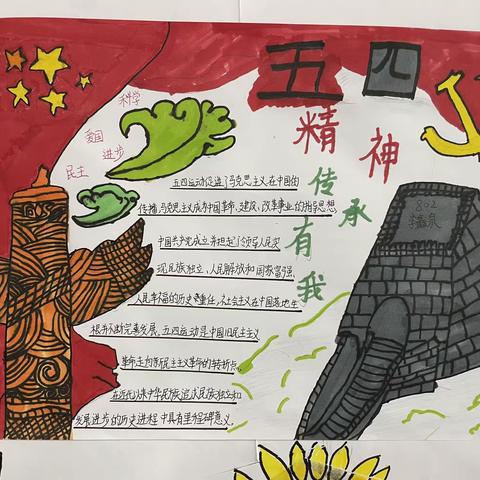 五四
精神
传承
有我
科学
爱国
进步
民主
五四运动促进了马克思主义在中国的
传播,马克思主义成为中国革命、建设、改革事业的指导思想
中国共产党成立并担起了领导人民实
现民族独立、人民解放和国家富强、
人民幸福的历史重任,社会主义在中国落地生
根并不断完善发展。五四运动是中国旧民主主义
革命走向新民主主义革命的转折点,
在近代以来中华民族追求民族独立和
发展进步的历史进程中具有里程碑意义。
802